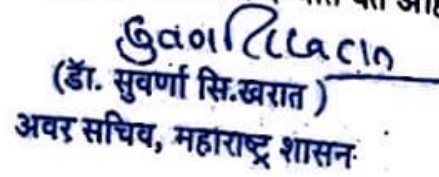 (डॉ. सुवर्णा सि.खरात )
अवर सचिव, महाराष्ट्र शासन